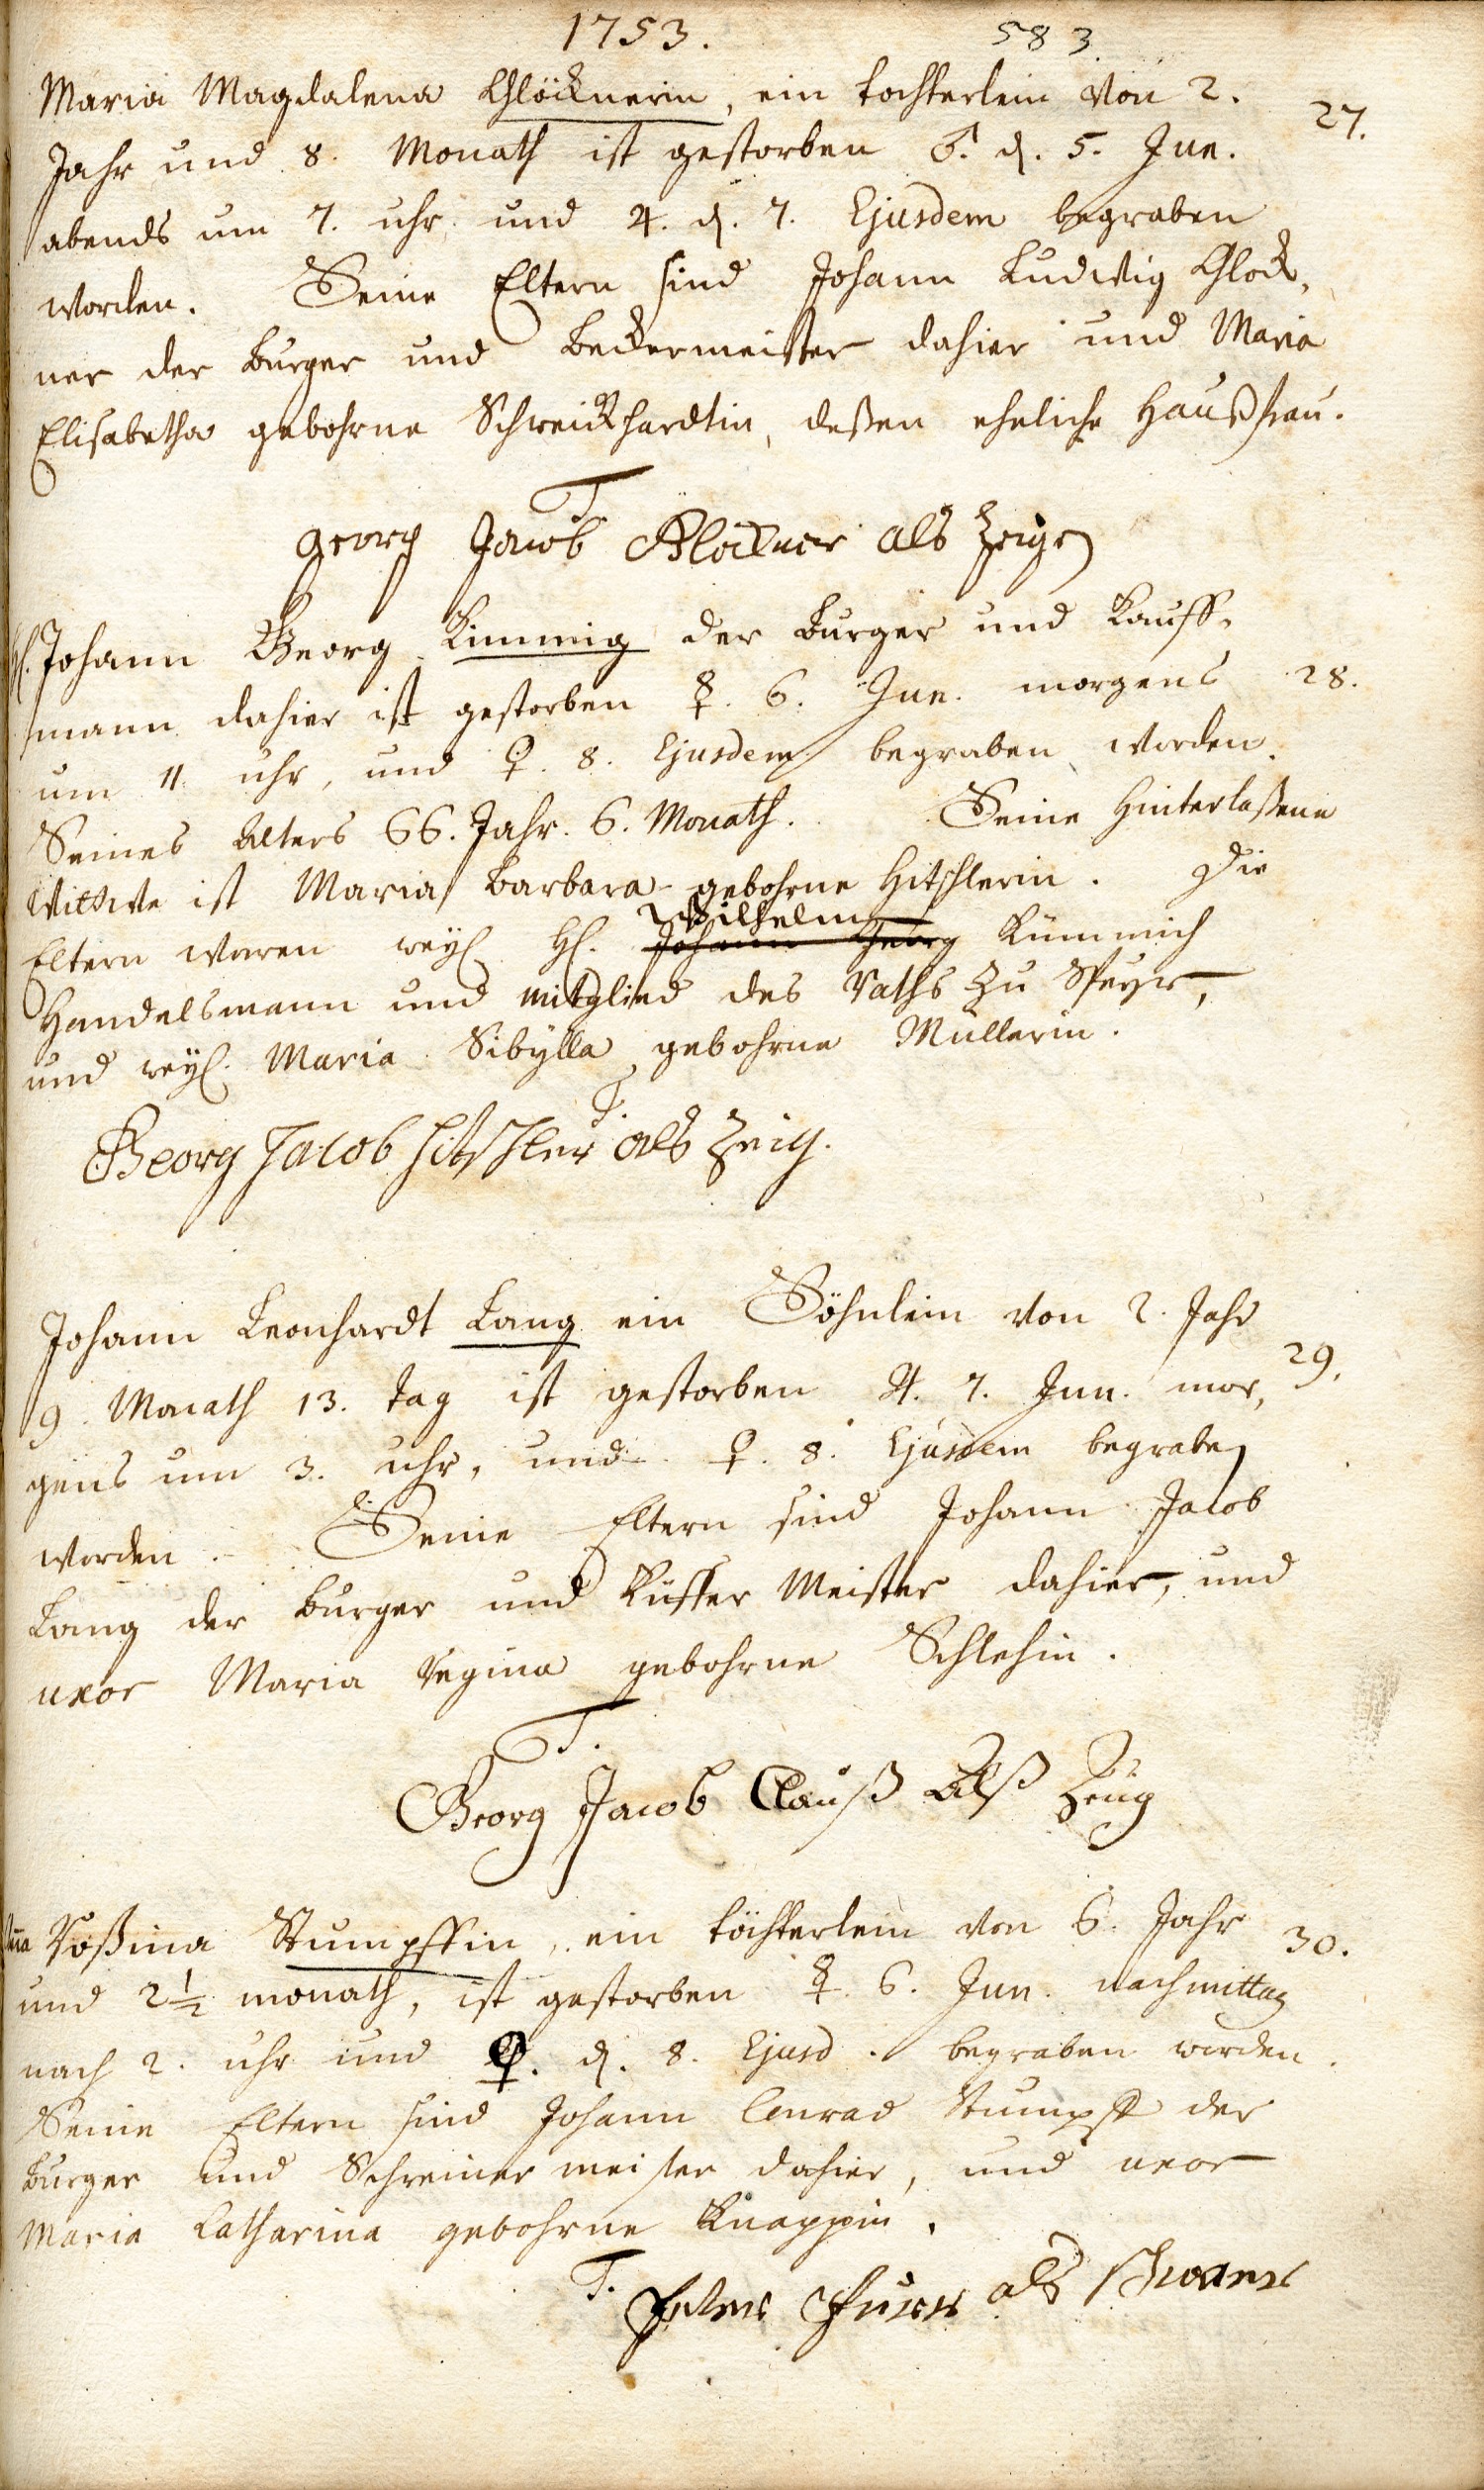 1753. 583.
Maria Magdalena Glöcknerin, ein tochterlein von 2. 27.
Jahr und 8. Monath ist gestorben ♂. d. 5. Jun.
abends um 7. uhr und ♃. d. 7. Ejusdem begraben
worden. Seine Eltern sind Johann Ludwig Glock,
ner der burger und beckermeister dahier und Maria
Elisabetha gebohrne Schweickhardtin, deßen eheliche Haußfrau.
T.
georg Jacob Glöckner als Zeuge
H. Johann Georg Kimmig der burger und Kauff-
mann dahier ist gestorben ☿. 6. Jun. morgens 28.
um 11 uhr, und ♀. 8. Ejusdem begraben worden.
Seines Alters 66. Jahr. 6. Monath. Seine Hinterlaßene
Wittwe ist Maria Barbara gebohrne Hitschlerin. Die
Wilhelm
Eltern waren weyl. H. Johann Georg Kümmich
Handelsmann und mitglied des Raths zu Speyer,
und weyl. Maria Sibylla gebohrne Müllerin.
T.
Georg Jacob Hitschler als Zeig.
Johann Leonhardt Lang ein Söhnlein von 2. Jahr
9. Monath 13. tag ist gestorben ♃. 7. Jun. mor, 29.
gens um 3. uhr, und ♀. 8. Ejusdem begraben
worden. Seine Eltern sind Johann Jacob
Lang der burger und Küffer Meister dahier, und
uxor Maria Regina gebohrne Schlehin.
T.
Georg Jacob Clauß Alß Zeug
Roßina Stumpffin, ein töchterlein von 6. Jahr 30.
und 2 1/2 monath, ist gestorben ☿. 6. Jun. nachmittag
nach 2. uhr und ♀. d. 8. Ejusd. begraben worden.
Seine Eltern sind Johann Conrad Stumpff der
burger und Schreinermeister dahier, und uxor
Maria Catharina gebohrne Knappin.
T. als